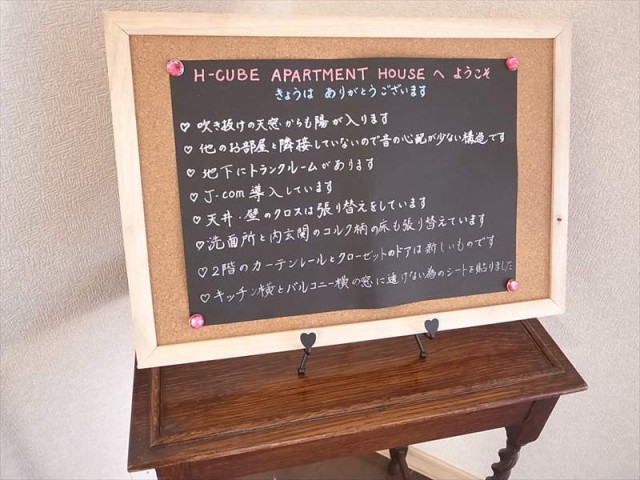 H-CUBE APARTMENT HOUSE へ ようこそ
きょうは ありがとうございます
♡ 吹き抜けの天窓からも陽が入ります
♡ 他のお部屋と隣接していないので音の心配が少ない構造です
♡ 地下にトランクルームがあります
♡ J-com 導入しています
♡ 天井・壁のクロスは張り替えをしています
♡ 洗面所と内玄関のコルク柄の床も張り替えています
♡ 2階のカーテンレールとクローゼットのドアは新しいものです
♡ キッチン横とバルコニー横の窓に透けない為のシートを貼りました